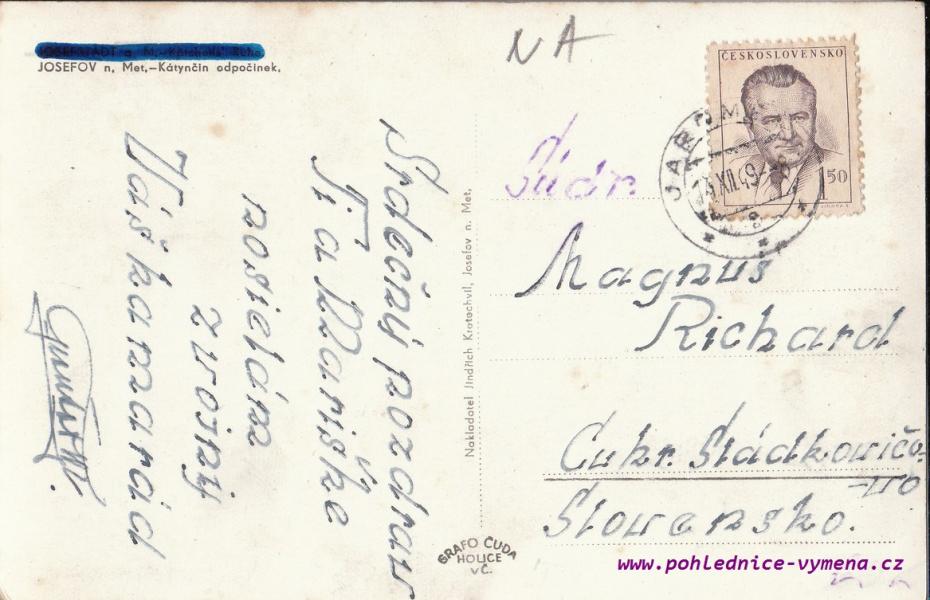 JOSEFOV n. Met.-Kátynčin odpočinek.
NA
ČESKOSLOVENSKO
1 50
JAROMĚ
XII.49-18
Srdečný pozdrav
Ti a Mariške
posielam
z vojny
Váš kamarád
Nakladatel Jindřich Kratochvíl, Josefov n. Met.
Súdr
Magnus
Richard
Cukr. Sládkovičo-
-vo
Slovensko.
GRAFO ČUDA
HOLICE
v Č.
www.pohlednice-vymena.cz